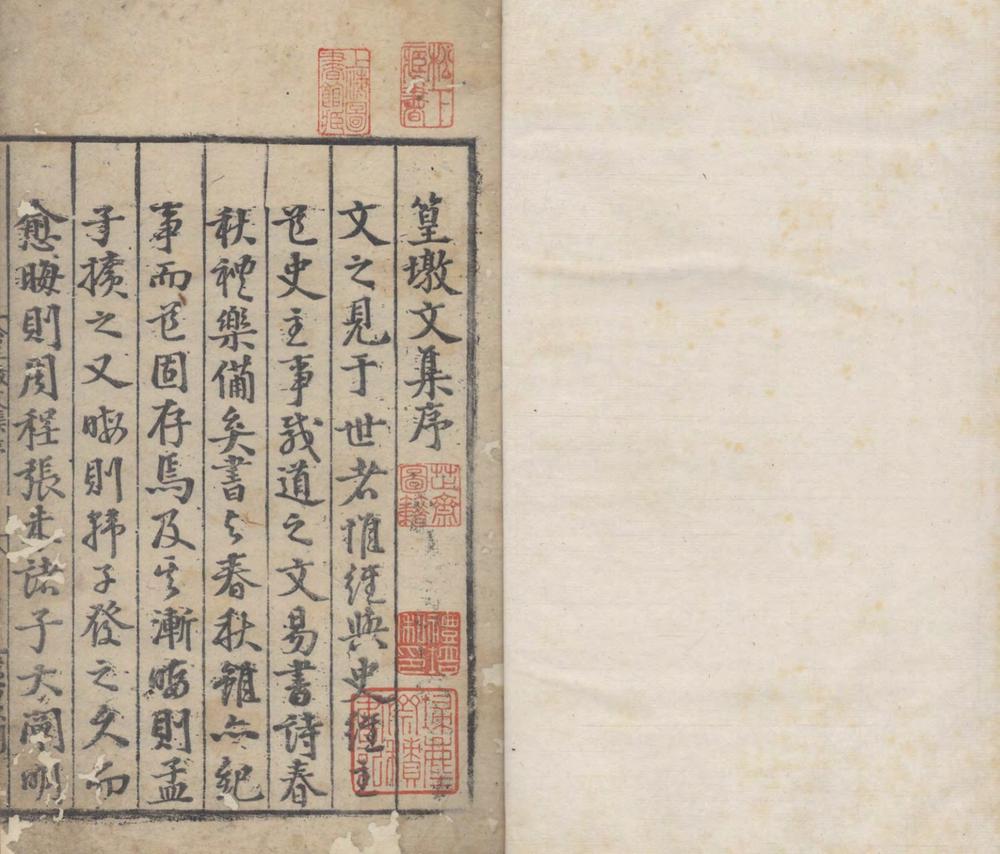 篁墩文集序
文之見于世者惟經與史經主
道史主事載道之文易書詩春
秋禮樂備矣書与春秋雖亦紀
事而道固存焉及其漸晦則孟
子擴之又晦則韓子發之久而
愈晦則周程張朱諸子大闡明
松下藏書
上海圖書館藏